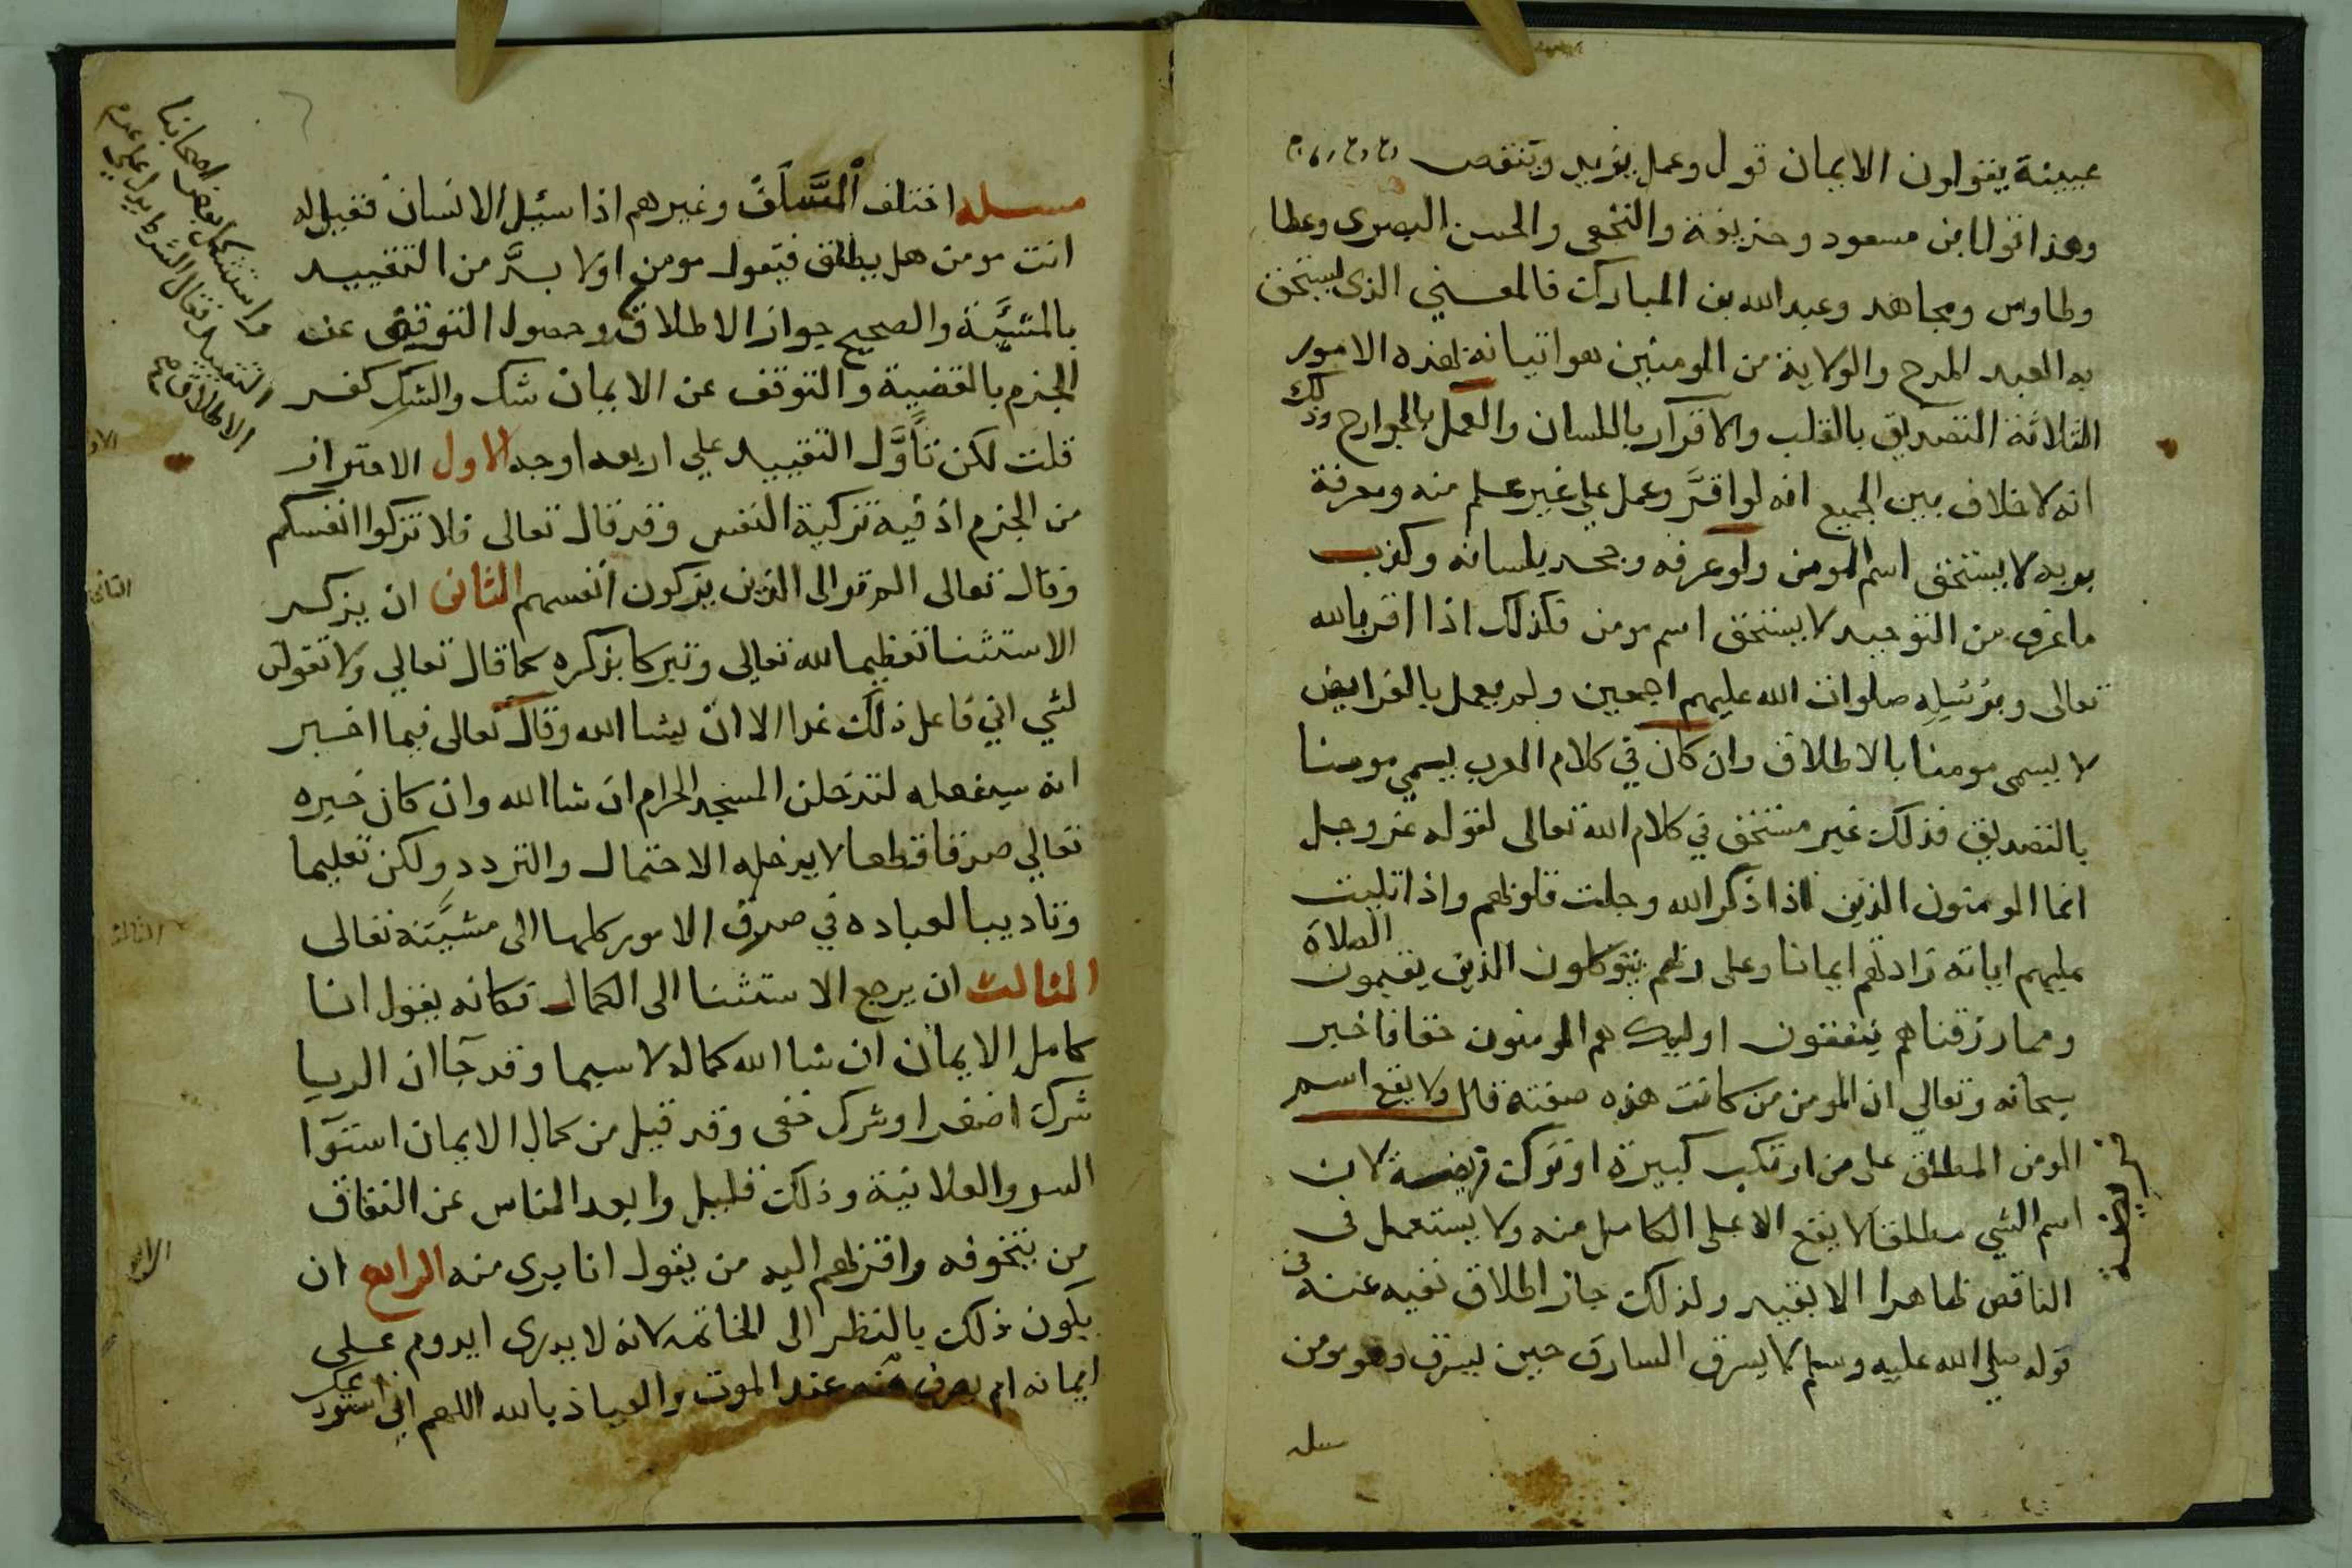 عيينة يقولون الايمان قول وعمل يزيد وينقص
وهذا قول ابن مسعود وحذيفة والنخعي والحسن البصري وعطا
وطاوس ومجاهد وعبد الله بن المبارك فالمعني الذي يستحق
به العبد المدح والولاية من المومنين هو اتيانه بهذه الامور
الثلاثة التصديق بالقلب والاقرار باللسان والعمل بالجوارح وذلك
انه لا خلاف بين الجميع انه لو اقر وعمل علي غير علم منه ومعرفة
بربه لا يستحق اسم المومن ولو عرفه وجحد بلسانه وكذب
ما عرف من التوحيد لا يستحق اسم مومن فكذلك اذا اقر بالله
تعالى وبرسله صلوات الله عليهم اجمعين ولم يعمل بالفرايض
لا يسمى مومنا بالاطلاق وان كان في كلام العرب يسمي مومنا
بالتصديق فذلك غير مستحق في كلام الله تعالى لقوله عز وجل
انما المومنون الذين اذا ذكر الله وجلت قلوبهم واذا تليت
عليهم اياته زادتهم ايمانا وعلى ربهم يتوكلون الذين يقيمون الصلاة
ومما رزقناهم ينفقون اوليك هم المومنون حقا فاخبر
سبحانه وتعالي ان المومن من كانت هذه صفته قال ولا يقع اسم
المومن المطلق على من ارتكب كبيرة او ترك فريضة لان
فريضة
اسم الشي مطلقا لا يقع الا على الكامل منه ولا يستعمل في
الناقص ظاهرا الا بقيد ولذلك جاز اطلاق نفيه عنه في
قوله صلي الله عليه وسلم لا يسرق السارق حين يسرق وهو مومن
مسله
مسله اختلف السلف وغيرهم اذا سئل الانسان فقيل له
انت مومن هل يطلق فيقول مومن اولا بد من التقييد
بالمشيئة والصحيح جواز الاطلاق وحصول التوقف عن
الجزم بالقضية والتوقف عن الايمان شك والشك كفر
قلت لكن تأول التقييد علي اربعه اوجه الاول الاحتراز
من الجزم اذ فيه تزكية النفس وقد قال تعالى فلا تزكوا انفسكم
وقال تعالى الم تر الى الذين يزكون انفسهم الثاني ان يذكر
الاستثنا تعظيما لله تعالى وتبركا بذكره كما قال تعالي ولا تقولن
لشي اني فاعل ذلك غدا الا ان يشا الله وقال تعالى فيما اخبر
انه سيفعله لتدخلن المسجد الحرام ان شا الله وان كان خبره
تعالي صدقا قطعا لا يدخله الاحتمال والتردد ولكن تعليما
وتاديبا لعباده في صرف الامور كلها الى مشيئته تعالى
الثالث ان يرجع الاستثنا الى الكمال فكانه يقول انا
كامل الايمان ان شا الله كماله لا سيما وقد جا ان الريا
شرك اصغر او شرك خفى وقد قيل من كمال الايمان استوا
السر والعلانية وذلك قليل وابعد الناس عن النفاق
من يتخوفه واقربهم اليه من يقول انا بري منه الرابع ان
يكون ذلك بالنظر الى الخاتمه لانه لا يدري ايدوم علي
ايمانه ام يصرف عنه عند الموت والعياذ بالله اللهم اني استودعك
واستشكل بعض اصحابنا
التقييد فقال الشرط يدل علي عدم
الاطلاق
الاول
الثاني
الثالث
الرابع